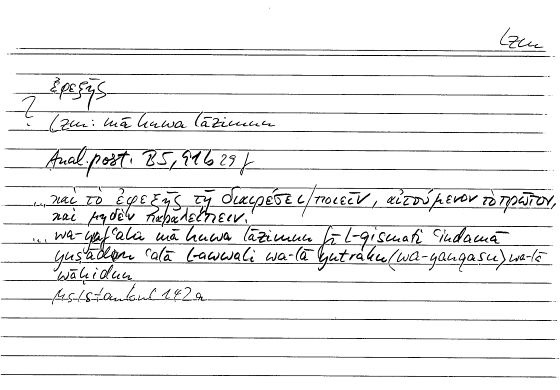 lzm
ἐφεξῆς
?
lzm: mā huwa lāzimun
Anal. post. B5, 91b 29 f
... καὶ τὸ ἐφεξῆς τῇ διαιρέσει / ποιεῖν, αἰτούμενον τὸ πρῶτον,
καὶ μηδὲν παραλείπειν.
... wa-yafʿala mā huwa lāzimun fī l-qismati ʿindamā
yuṣādaru ʿalā l-awwali wa-lā yutraku (wa-yanqaṣu) wa-lā
wāḥidun
Ms Istanbul 142a